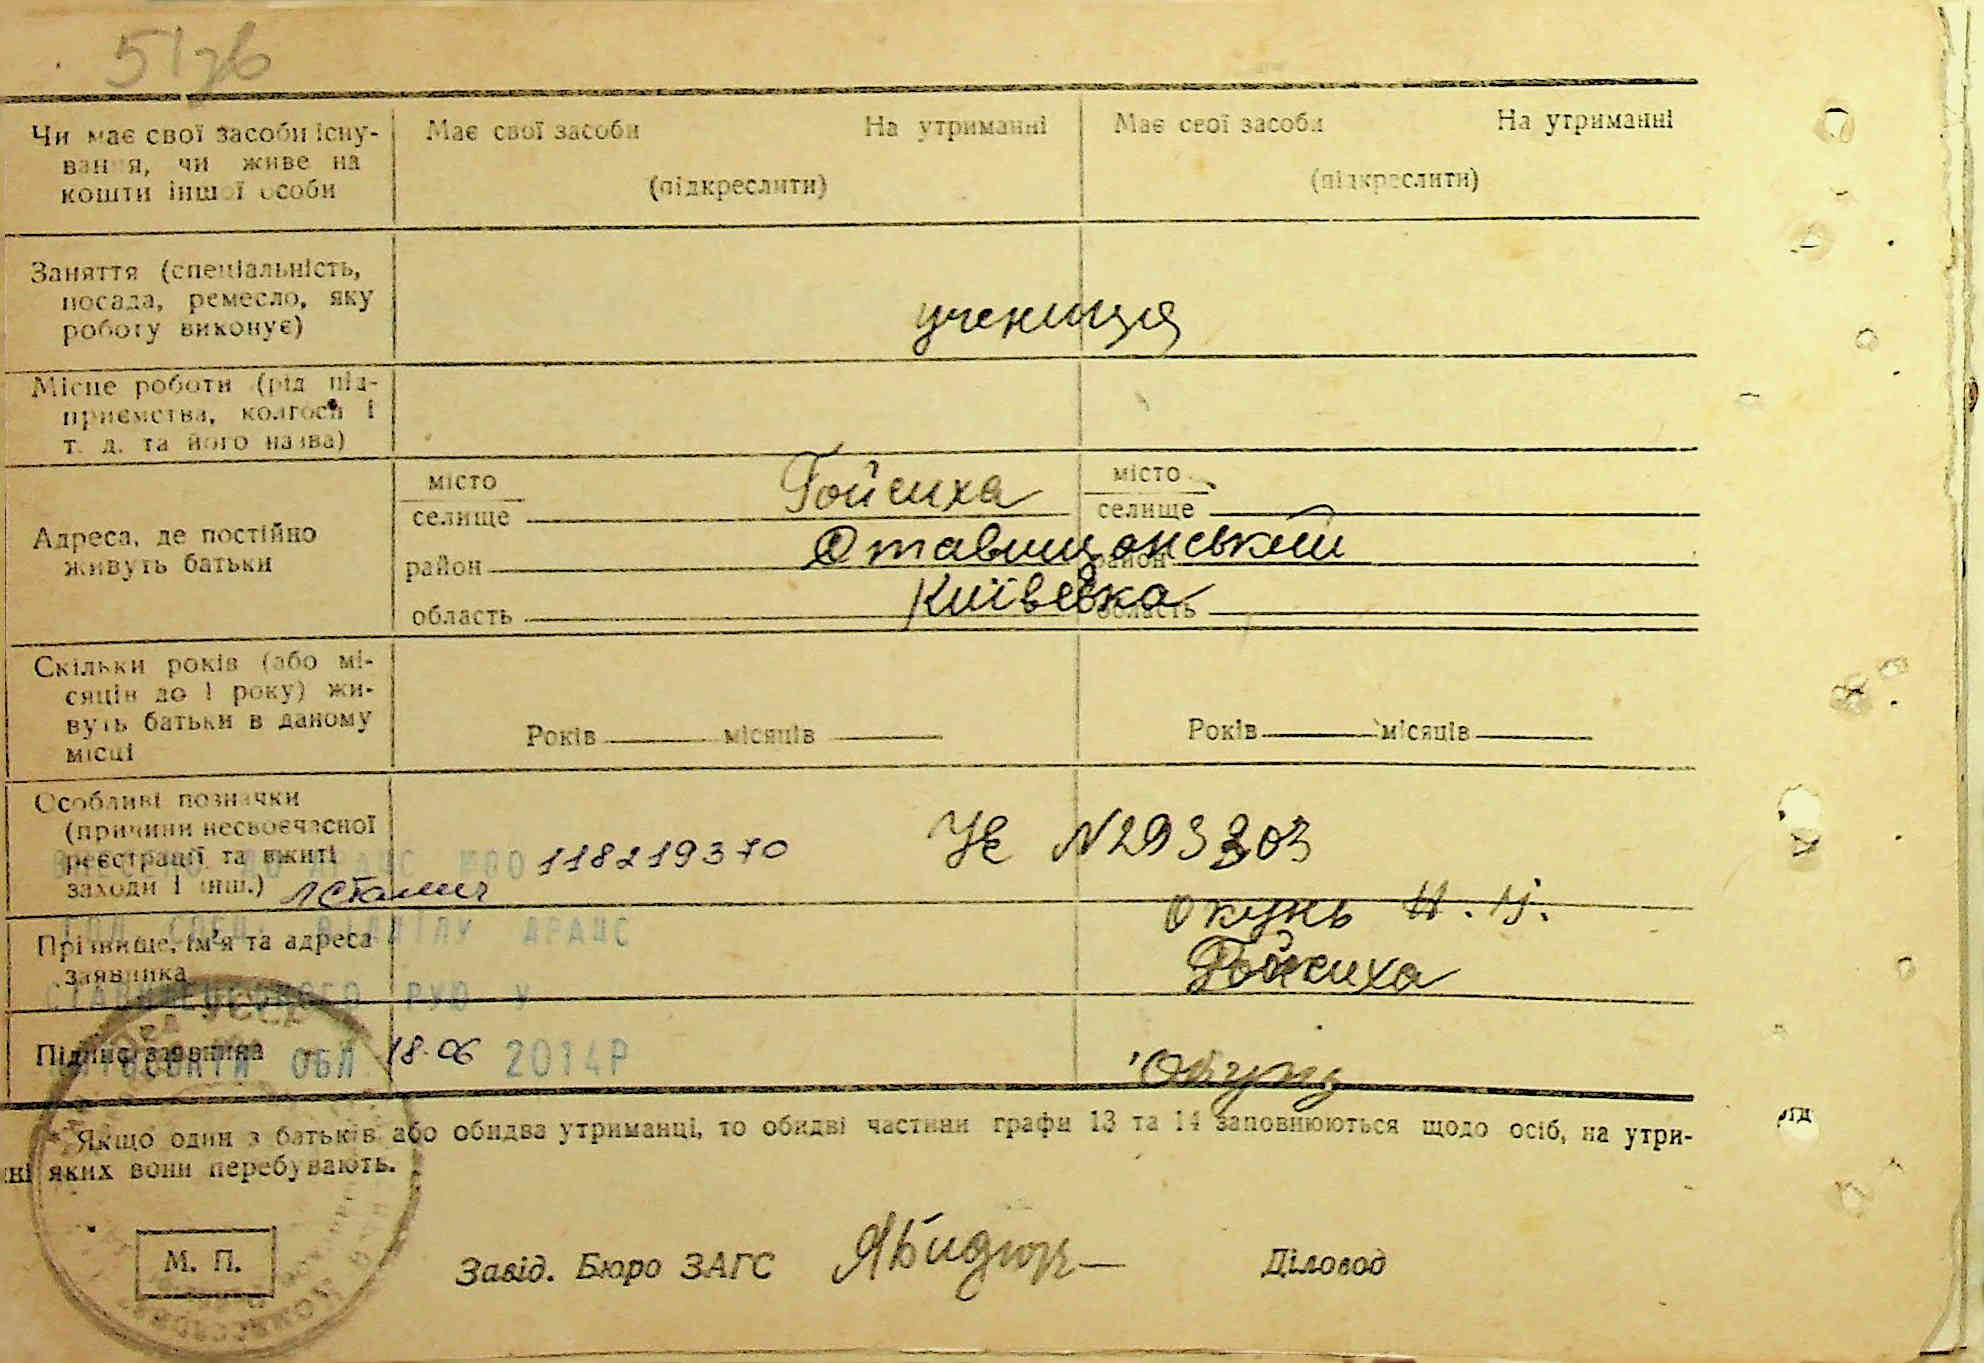 51зв
Чи має свої засоби існу-
вання, чи живе на
кошти іншої особи
Має свої засоби На утриманні
(підкреслити)
Має свої засоби На утриманні
(підкреслити)
Заняття (спеціальність,
посада, ремесло, яку
роботу виконує)
учениця
Місце роботи (рід під-
приємства, колгосп і
т. д. та його назва)
Адреса, де постійно
живуть батьки
місто
селище
район
область
Гойсиха
Ставищанський
Київська
місто
селище
район
область
Скільки років (або мі-
сяців до 1 року) жи-
вуть батьки в даному
місці
Років місяців
Років місяців
Особливі позначки
(причини несвоєчасної
реєстрації та вжиті
заходи і інш.)
118219370
УЄ N293303
Прізвище, ім'я та адреса
заявника
Окунь Н. И.
Гойсиха
ВІДДІЛУ ДРАЦС
СТАВИЩЕНСЬКОГО РУЮ У
Підпис заявника
ОБЛ 18.06 2014Р
Окунь
* Якщо один з батьків або обидва утриманці, то обидві частини графи 13 та 14 заповнюються щодо осіб, на утри-
ні яких вони перебувають.
М. П.
Завід. Бюро ЗАГС
Діловод